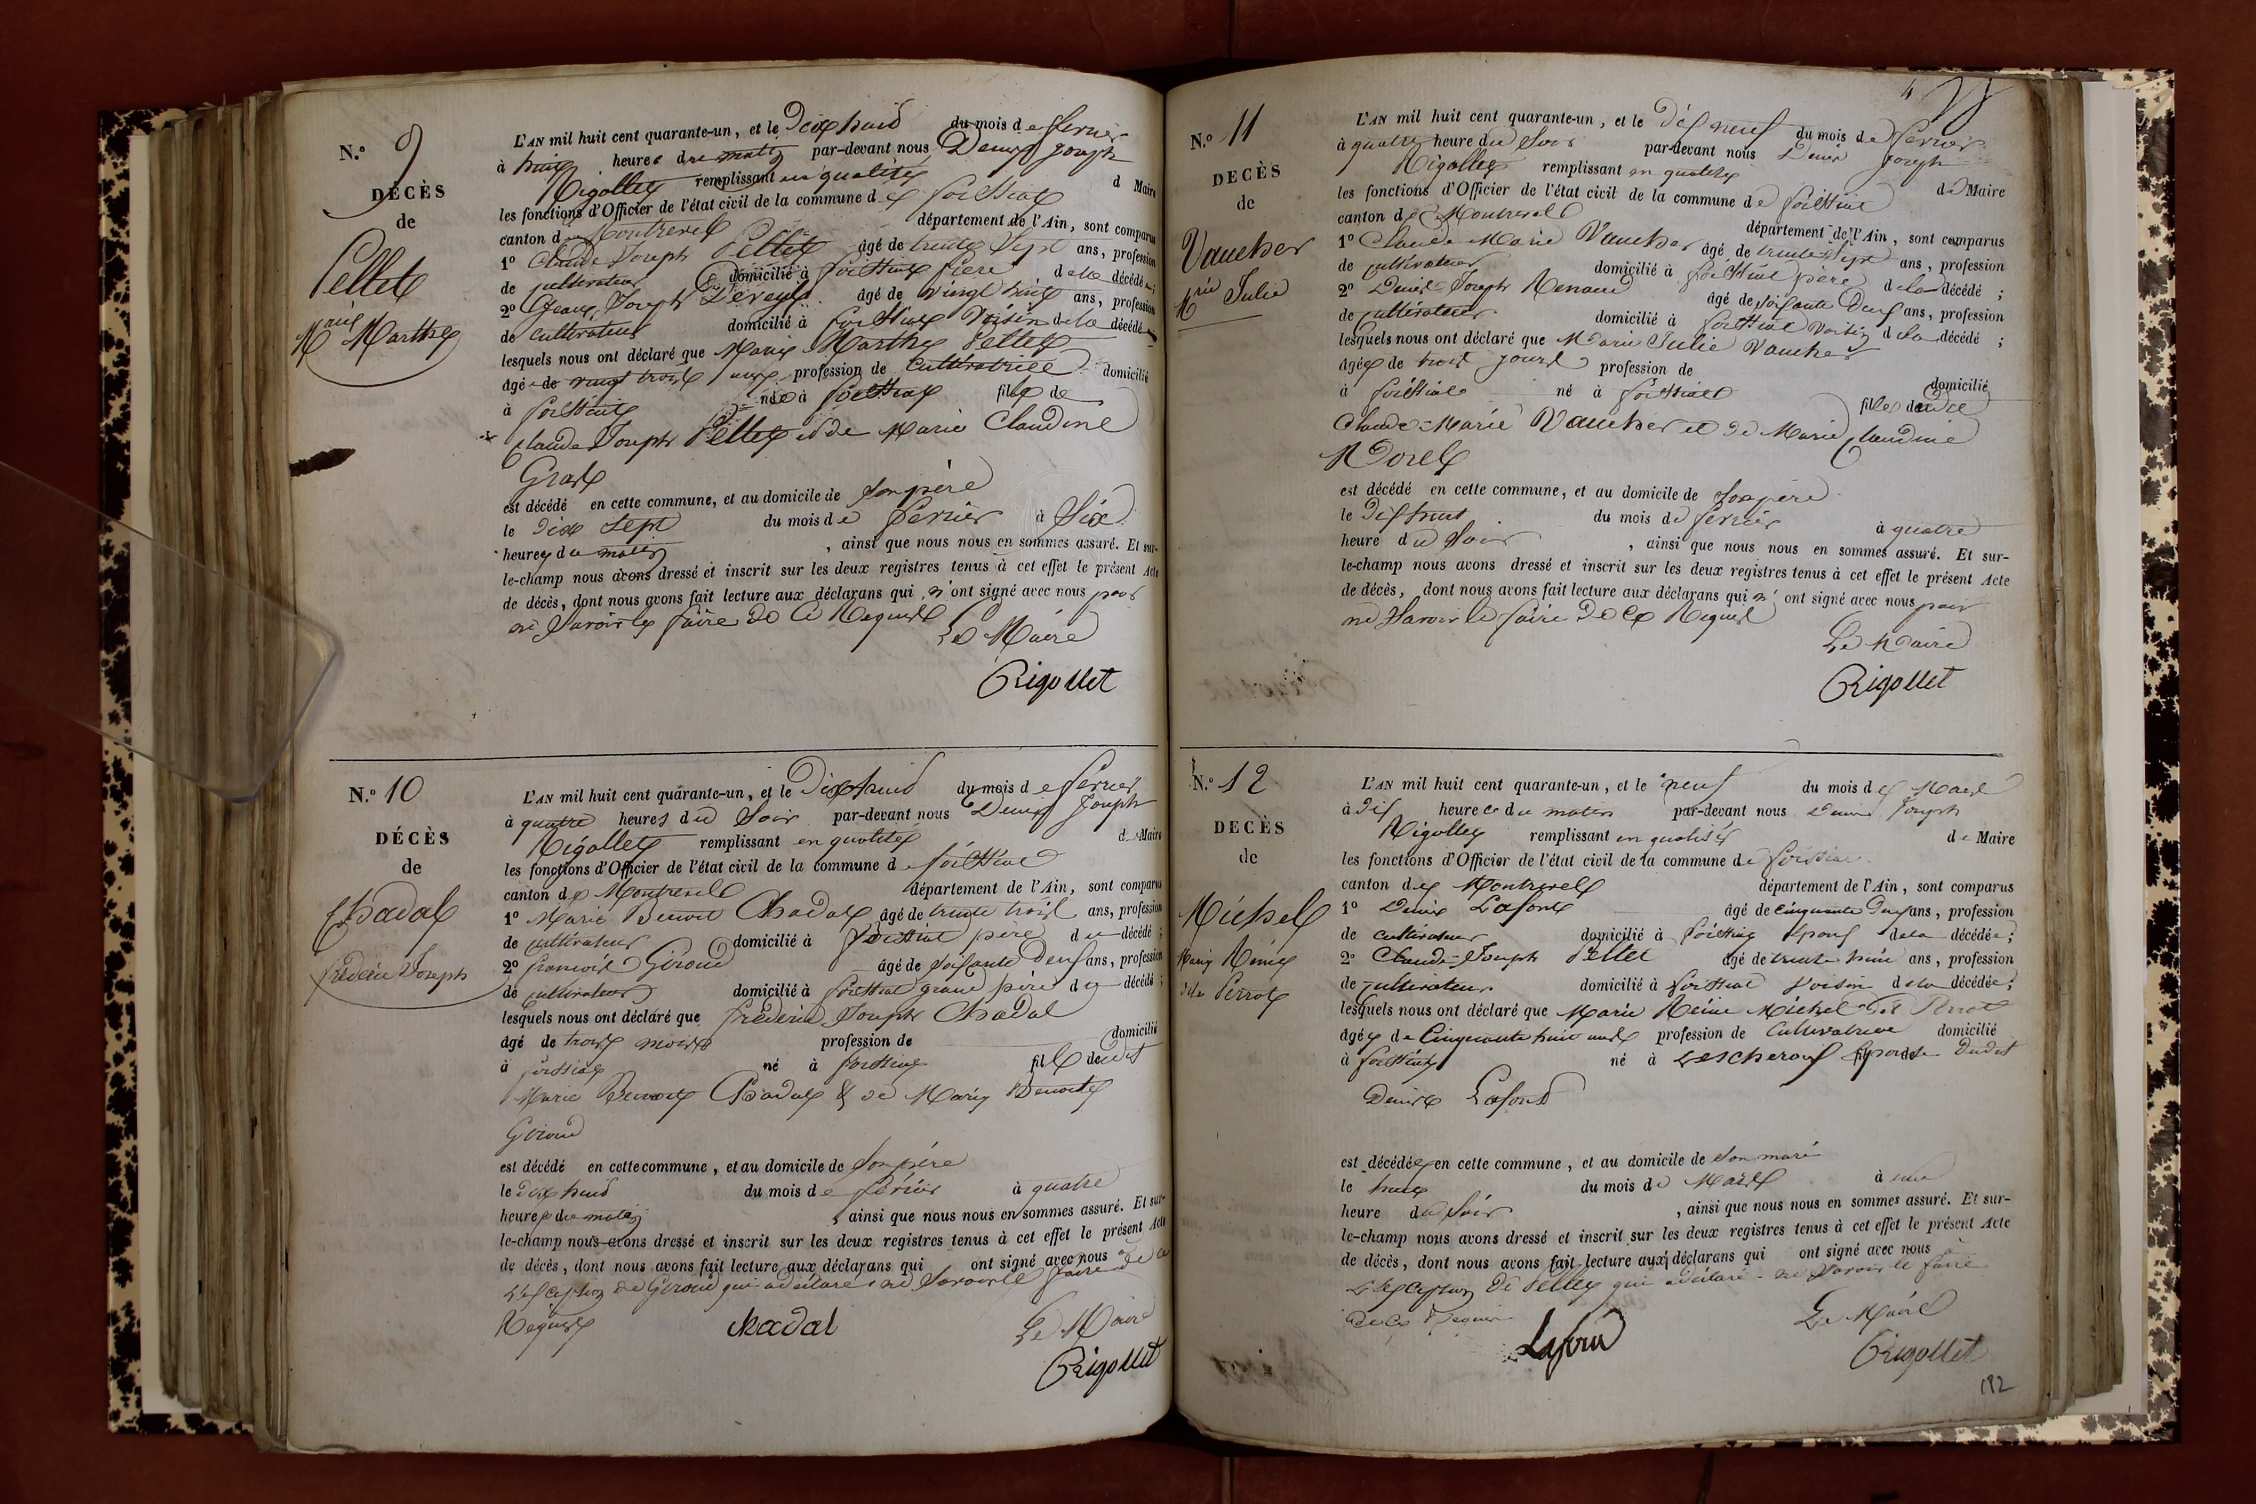 N.º 9
DÉCÈS
de
Pellet
Marie Marthe
L'AN mil huit cent quarante-un, et le Dix huit du mois de fevrier
à huit heures du matin par-devant nous Denis Joseph
Rigollet remplissant en qualité de Maire
les fonctions d'Officier de l'état civil de la commune de foissiat
canton de Montrevel département de l'Ain, sont comparus
1º Claude Joseph Pellet âgé de trente Sept ans, profession
de cultivateur domicilié à foissiat frère de la décédée;
2º Jean Joseph âgé de vingt huit ans, profession
de cultivateur domicilié à foissiat Voisin de la décédée
lesquels nous ont déclaré que Marie Marthe Pellet
âgé de vingt trois ans profession de Cultivatrice domicilié
à foissiat née à foissiat fille de
Claude Joseph Pellet et de Marie Claudine
est décédé en cette commune, et au domicile de Son père
le dix Sept du mois de fevrier à Six
heures du matin, ainsi que nous nous en sommes assuré. Et sur-
le-champ nous avons dressé et inscrit sur les deux registres tenus à cet effet le présent Acte
de décès, dont nous avons fait lecture aux déclarans qui n'ont signé avec nous pour
ne Savoir le faire de ce Requis
Le Maire
Rigollet
N.º 10
DÉCÈS
de
Chadal
frédéric Joseph
L'AN mil huit cent quarante-un, et le Dix huit du mois de fevrier
à quatre heures du Soir par-devant nous Denis Joseph
Rigollet remplissant en qualité de Maire
les fonctions d'Officier de l'état civil de la commune de foissiat
canton de Montrevel département de l'Ain, sont comparus
1º Marie Benoit Chadal âgé de trente trois ans, profession
de cultivateur domicilié à foissiat père du décédé;
2º francois Giroud âgé de Soisante Deux ans, profession
de cultivateur domicilié à foissiat grand père du décédé;
lesquels nous ont déclaré que frédéric Joseph Chadal
âgé de trois mois profession de domicilié
à foissiat né à foissiat fils dudit
Marie Benoit Chadal & de Marie Benoite
Giroud
est décédé en cette commune, et au domicile de Son père
le dix huit du mois de février à quatre
heures du matin, ainsi que nous nous en sommes assuré. Et sur-
le-champ nous avons dressé et inscrit sur les deux registres tenus à cet effet le présent Acte
de décès, dont nous avons fait lecture aux déclarans qui ont signé avec nous à
L'exception de Giroud qui a déclaré ne Savoir le faire de ce
Requis Chadal Le Maire
Rigollet
4
N.º 11
DECÈS
de
Vaucher
Mrie Julie
L'AN mil huit cent quarante-un, et le dix neuf du mois de fevrier
à quatre heure du Soir par-devant nous Denis Joseph
Rigollet remplissant en qualité de Maire
les fonctions d'Officier de l'état civil de la commune de foissiat
canton de Montrevel département de l'Ain, sont comparus
1º Claude Marie Vaucher âgé de trente Sept ans, profession
de cultivateur domicilié à foissiat père de la décédé;
2º Denis Joseph Renaud âgé de soisante Deux ans, profession
de cultivateur domicilié à foissiat voisin de la décédé;
lesquels nous ont déclaré que Marie Julie Vaucher
âgée de trois jours profession de domicilié
à foissiat né à foissiat fille dudit
Claude Marie Vaucher et de Marie Claudine
Morel
est décédé en cette commune, et au domicile de Son père
le Dix huit du mois de fevrier à quatre
heure du Soir, ainsi que nous nous en sommes assuré. Et sur-
le-champ nous avons dressé et inscrit sur les deux registres tenus à cet effet le présent Acte
de décès, dont nous avons fait lecture aux déclarans qui n'ont signé avec nous pour
ne Savoir le faire De ce Requis
Le Maire
Rigollet
N.º 12
DECÈS
de
Michel
Marie Reine
dite Perrot
L'AN mil huit cent quarante-un, et le neuf du mois de Mars
à dix heures du matin par-devant nous Denis Joseph
Rigollet remplissant en qualité de Maire
les fonctions d'Officier de l'état civil de la commune de foissiat
canton de Montrevel département de l'Ain, sont comparus
1º Denis Lafont âgé de cinquante Deux ans, profession
de cultivateur domicilié à foissiat Epoux de la décédée;
2º Claude Joseph Pellet âgé de trente huit ans, profession
de cultivateur domicilié à foissiat Voisin de la décédée;
lesquels nous ont déclaré que Marie Reine Michel dit Perrot
âgée de Cinquante huit ans profession de Cultivatrice domicilié
à foissiat né à Lescheroux Epouse Dudit
Denis Lafont
est décédée en cette commune, et au domicile de Son mari
le huit du mois de Mars à une
heure du Soir, ainsi que nous nous en sommes assuré. Et sur-
le-champ nous avons dressé et inscrit sur les deux registres tenus à cet effet le présent Acte
de décès, dont nous avons fait lecture aux déclarans qui ont signé avec nous à
L'exception De Pellet qui a déclaré ne Savoir le faire
de ce Requis Le Maire
Lafont Rigollet
182